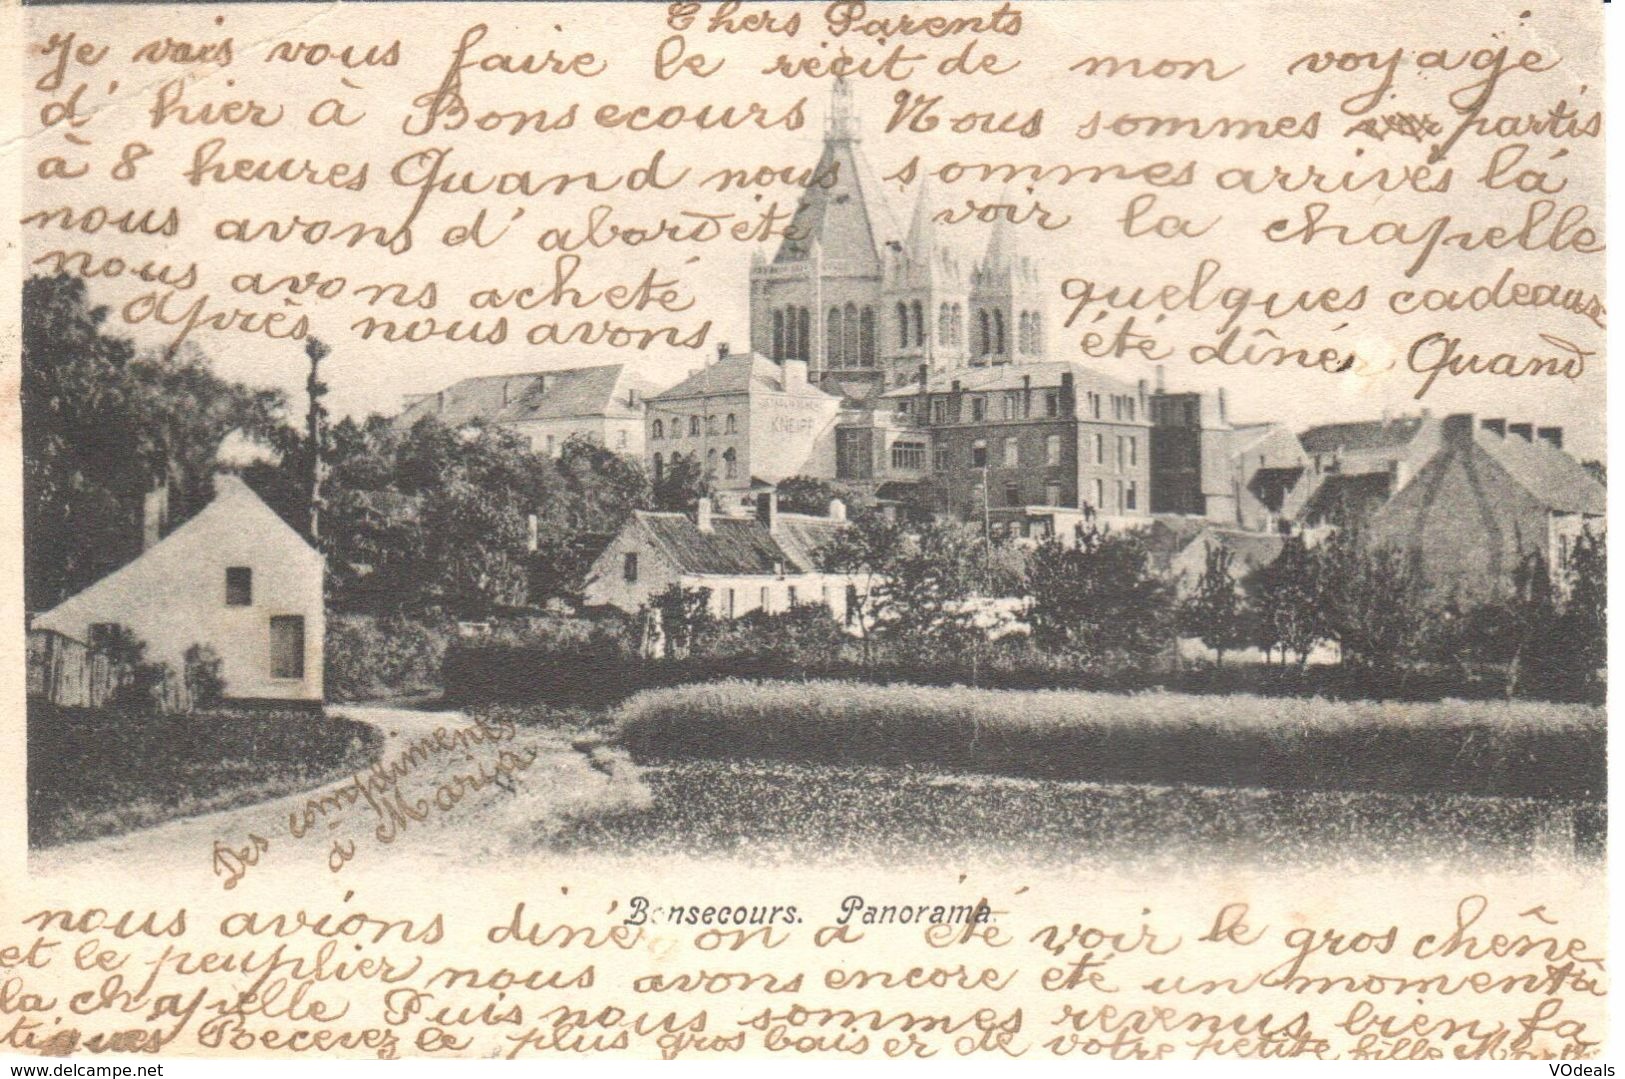 Chers Parents
Je vais vous faire le récit de mon voyage
d'hier à Bonsecours Nous sommes partis
à 8 heures Quand nous sommes arrivés là
nous avons d'abord été voir la chapelle
nous avons acheté quelques cadeaux
Après nous avons été dîner Quand
KNEIPP
Des compliments
à Maria
Bonsecours. Panorama.
nous avions diné on a été voir le gros chêne
et le peuplier nous avons encore été un moment à
la chapelle Puis nous sommes revenus bien fa
tigués Recevez le plus gros baiser de votre petite fille
delcampe.net
VOdeals